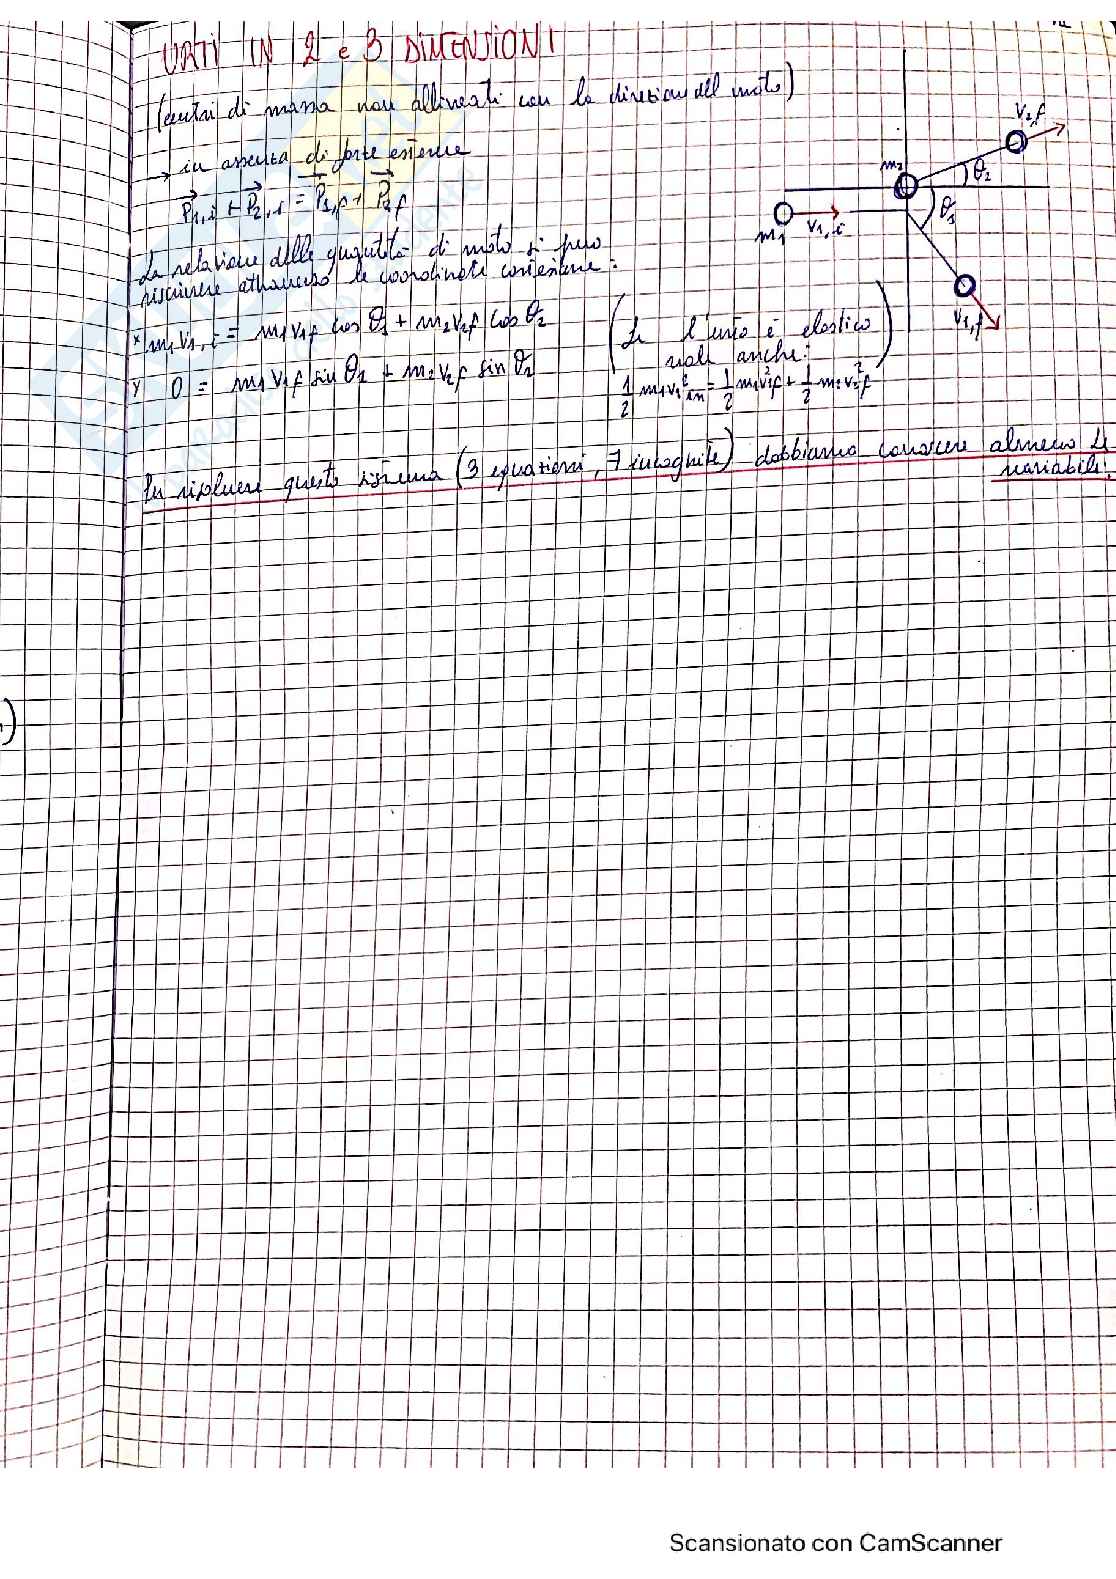 URTI IN 2 e 3 DIMENSIONI
(centri di massa non allineati con la direzione del moto)
→ in assenza di forze esterne
P1,i + P2,i = P1,f + P2f
La relazione delle quantità di moto si può
riscrivere attraverso le coordinate cartesiane:
x m1 v1,i = m1 v1f cos θ1 + m2 v2f cos θ2
y 0 = m1 v1f sin θ1 + m2 v2f sin θ2
(Se l'urto è elastico
vale anche:)
1/2 m1 v1²in = 1/2 m1 v1²f + 1/2 m2 v2²f
Per risolvere questo sistema (3 equazioni, 7 incognite) dobbiamo conoscere almeno 4
variabili.
v2,f
m2
θ2
θ1
m1
v1,i
v1,f
)
Scansionato con CamScanner